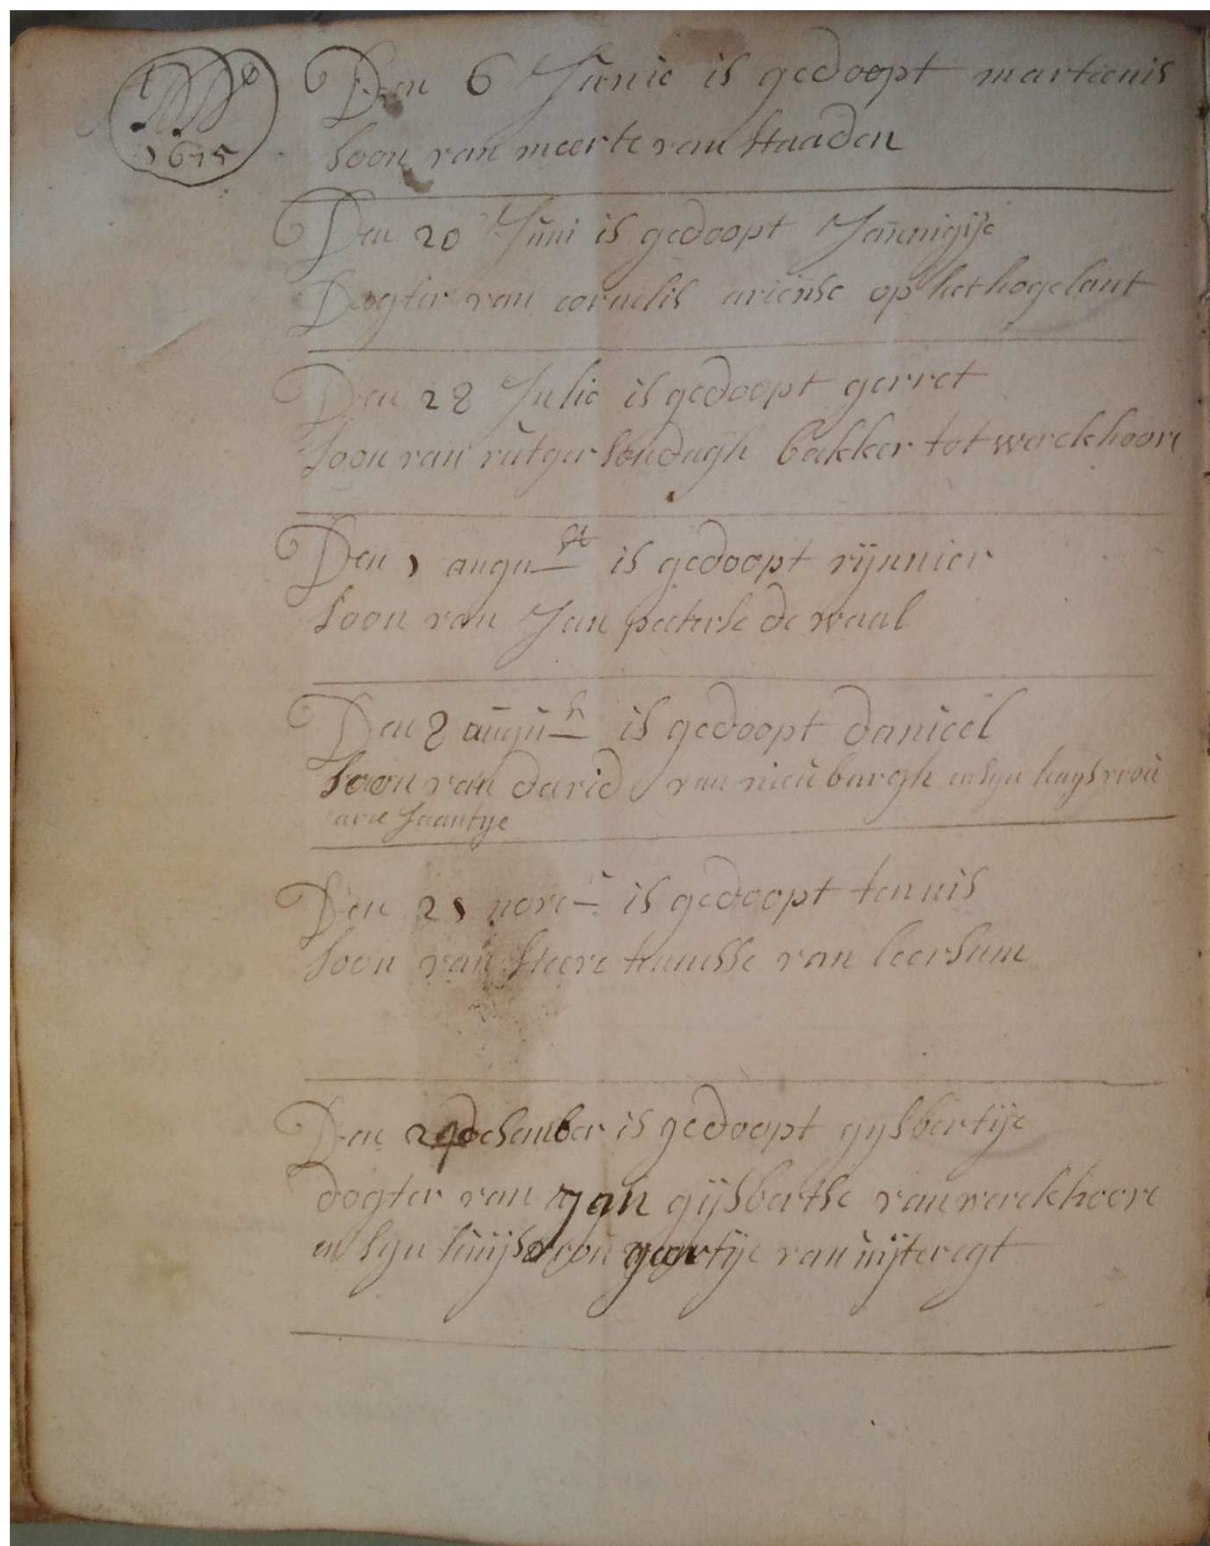 1675
Den 6 Junie is gedoopt martienis
soon van meerte van staaden
Den 20 Juni is gedoopt Jannigije
Dogter van cornelis ariense op het hogelant
Den 28 Julie is gedoopt gerret
soon van rutger sondagh bakker tot werckhove
Den 1 augu st is gedoopt rijnnier
soon van Jan peeterse de waal
Den 8 augu st is gedoopt danieel
soon van david van nieuburgh en syn huysvrou
Jaantye
Den 21 nove r is gedoopt teunis
soon van steeve teunisse van leersum
Den 29 desember is gedoopt gysbertije
dogter van Jan gijsbertse van werckhove
en syn huijsvrou geertije van uijteregt